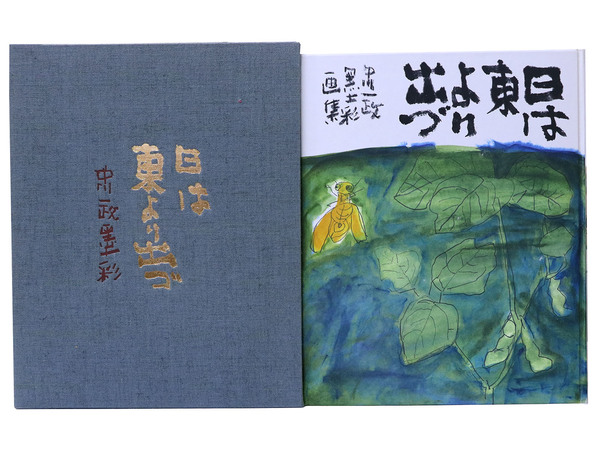 日は
東より出づ
中川一政墨彩
日は
東
より
出づ
中川一政
墨彩
画集